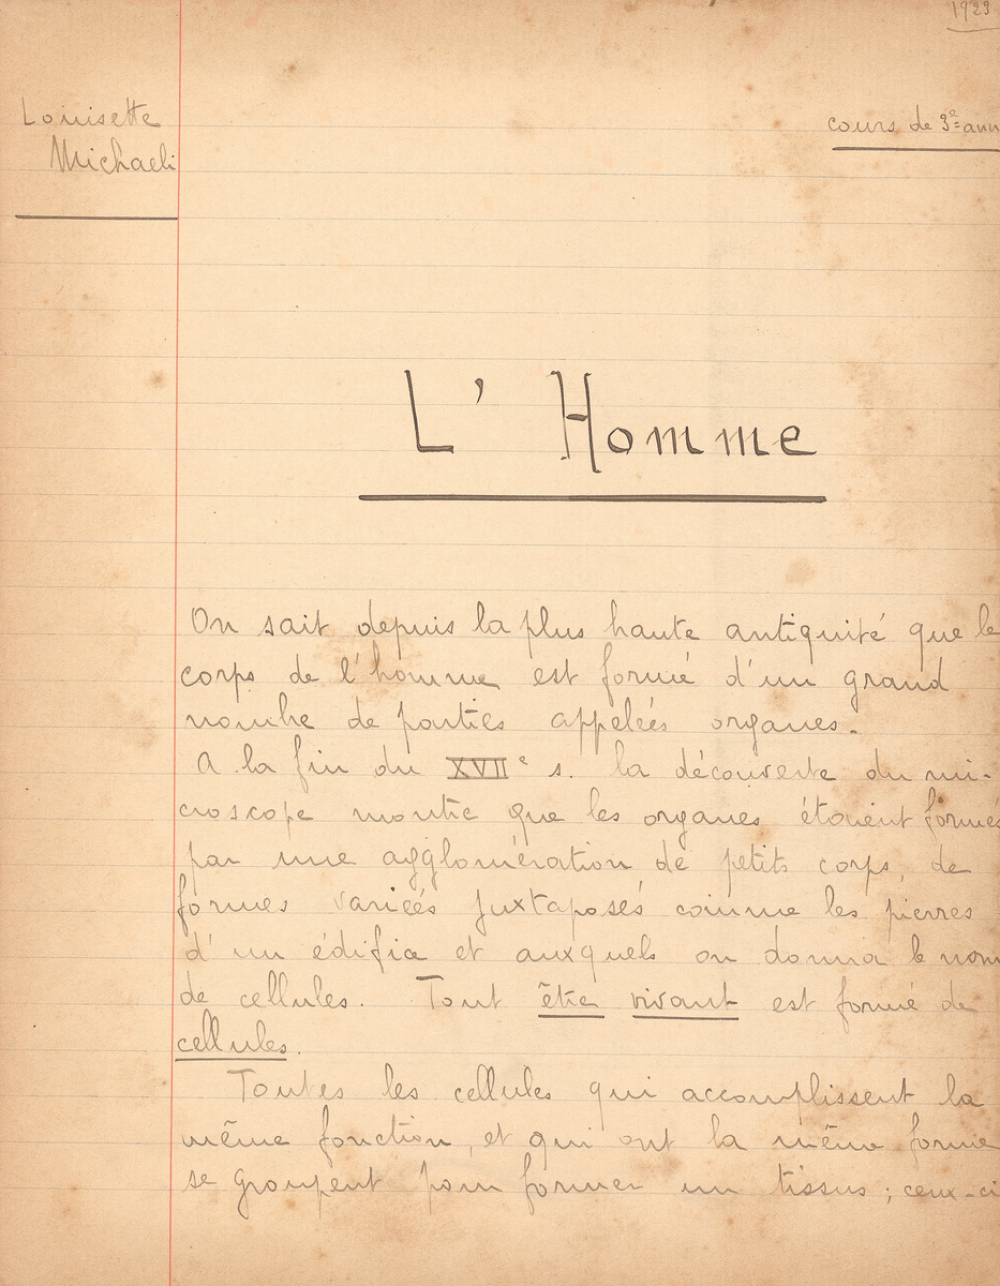 1923
Louisette
Michaeli
cours de 3e ann
L'Homme
On sait depuis la plus haute antiquité que le
corps de l'homme est formé d'un grand
nombre de parties appelées organes.
A la fin du XVIIe s. la découverte du mi-
croscope montre que les organes étaient formés
par une agglomération de petits corps, de
formes variées juxtaposés comme les pierres
d'un édifice et auxquels on donna le nom
de cellules. Tout être vivant est formé de
cellules.
Toutes les cellules qui accomplissent la
même fonction, et qui ont la même forme
se groupent pour former un tissus ; ceux-ci